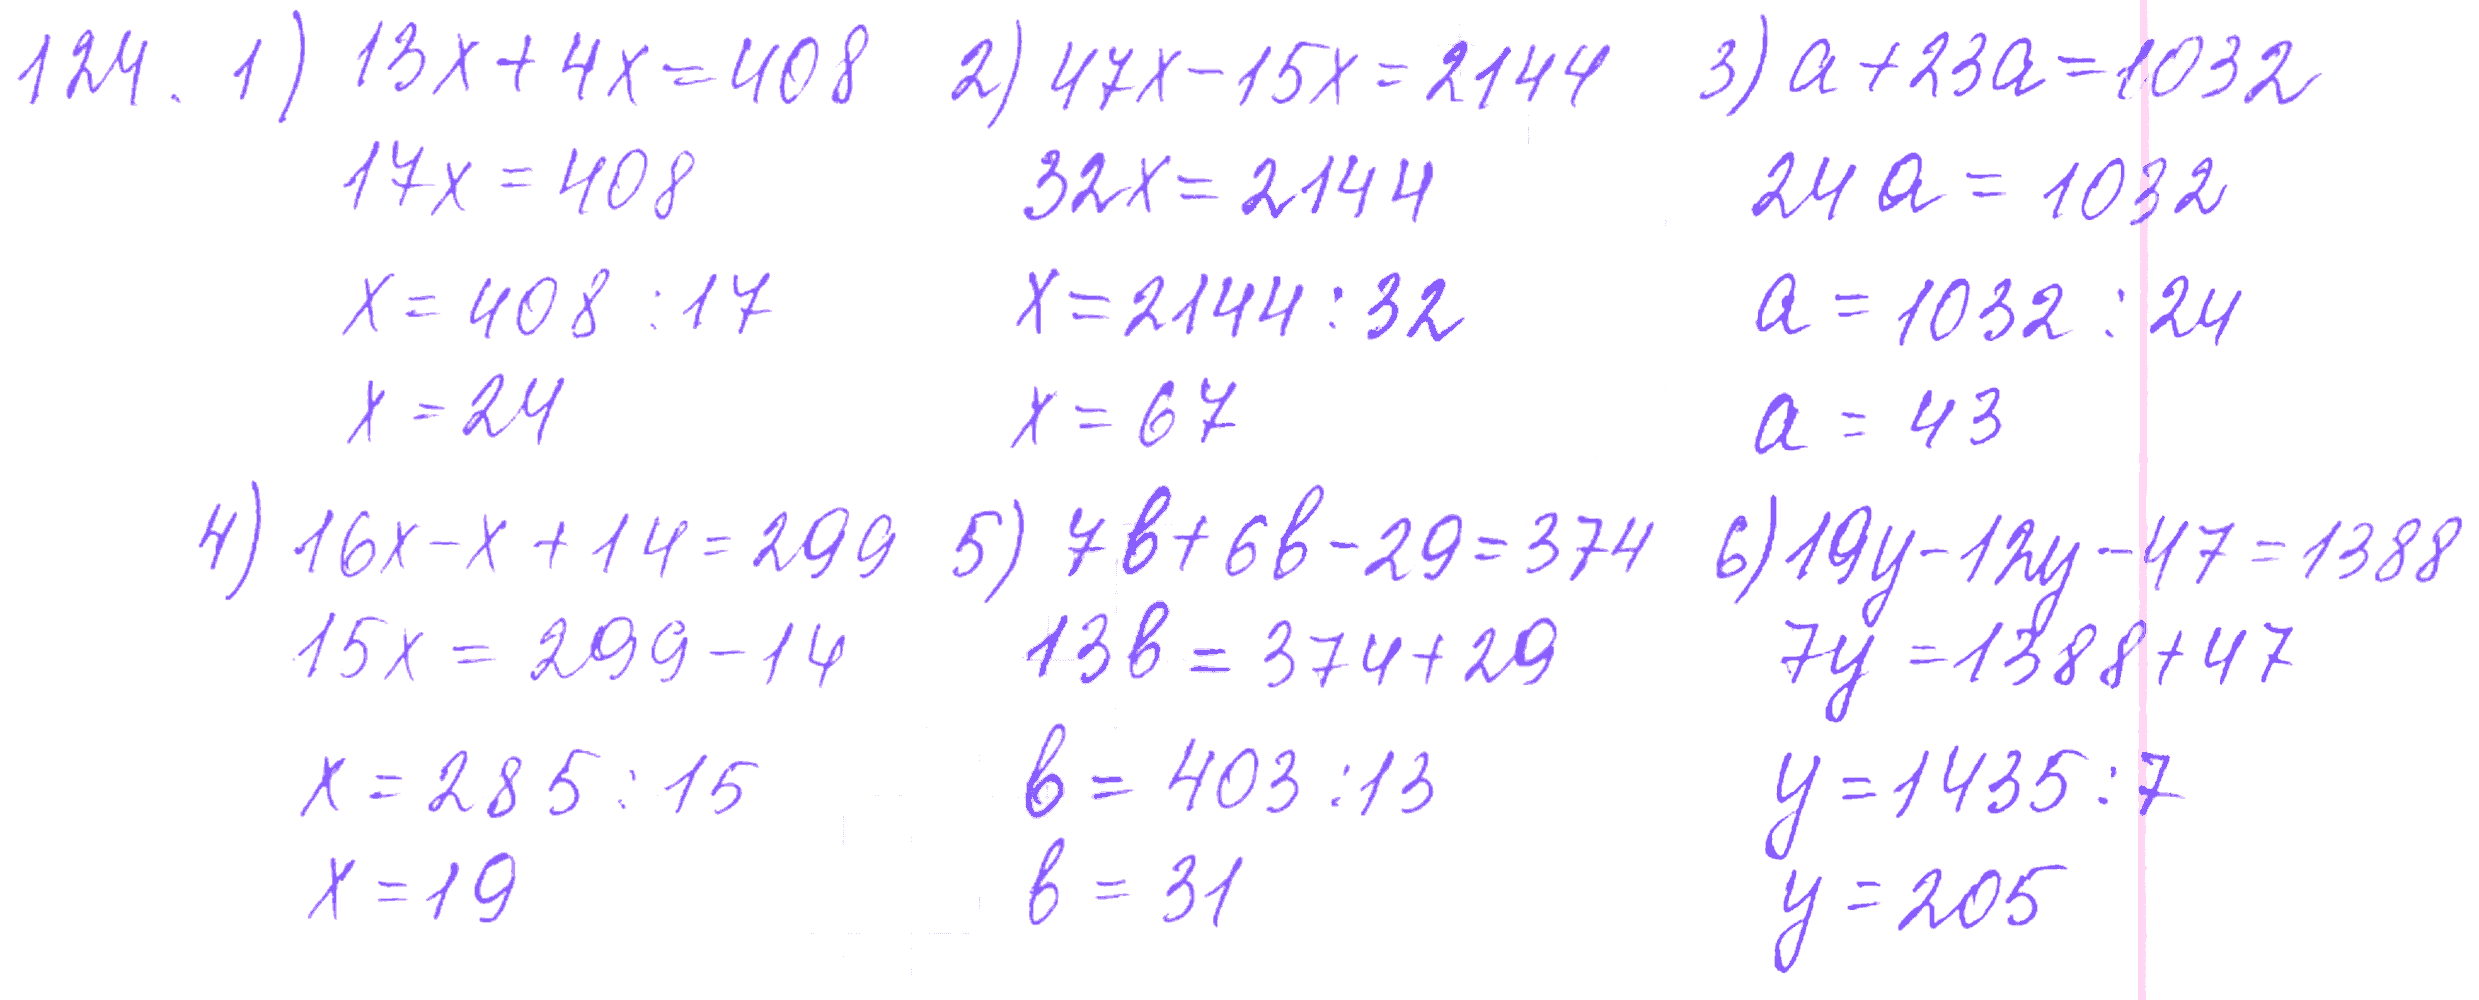 124. 1) 13x+4x=408 2) 47x-15x=2144 3) a+23a=1032
17x=408 32x=2144 24a=1032
x=408:17 x=2144:32 a=1032:24
x=24 x=67 a=43
4) 16x-x+14=299 5) 7b+6b-29=374 6) 19y-12y-47=1388
15x=299-14 13b=374+29 7y=1388+47
x=285:15 b=403:13 y=1435:7
x=19 b=31 y=205